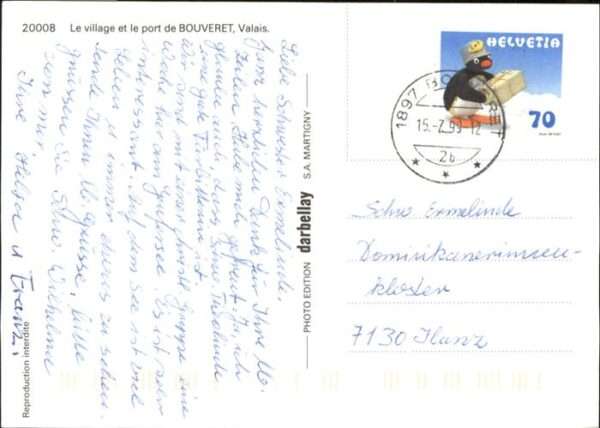 20008 Le village et le port de BOUVERET, Valais.
Liebe Schwester Ermelinde,
Ganz herzlichen Dank für Ihre lb.
Zeilen. Habe mich gefreut. Ja ich
glaube auch, dass Schw.
eine gute
Wir sind mit einer Gruppe eine
Woche hier am Genfersee. Es ist sehr
interessant. Auf dem See ist viel
Leben u. immer etwas zu sehen.
sende Ihnen lb. Grüsse, bitte
grüssen Sie Schw. Wilhelmine
von mir.
Ihre u Franz.
Reproduction interdite
PHOTO EDITION darbellay S.A. MARTIGNY
HELVETIA
70
1897 BOUVERET
15.-7.99-12
2b
Schw Ermelinde
Dominikanerinnen-
kloster
7130 Ilanz